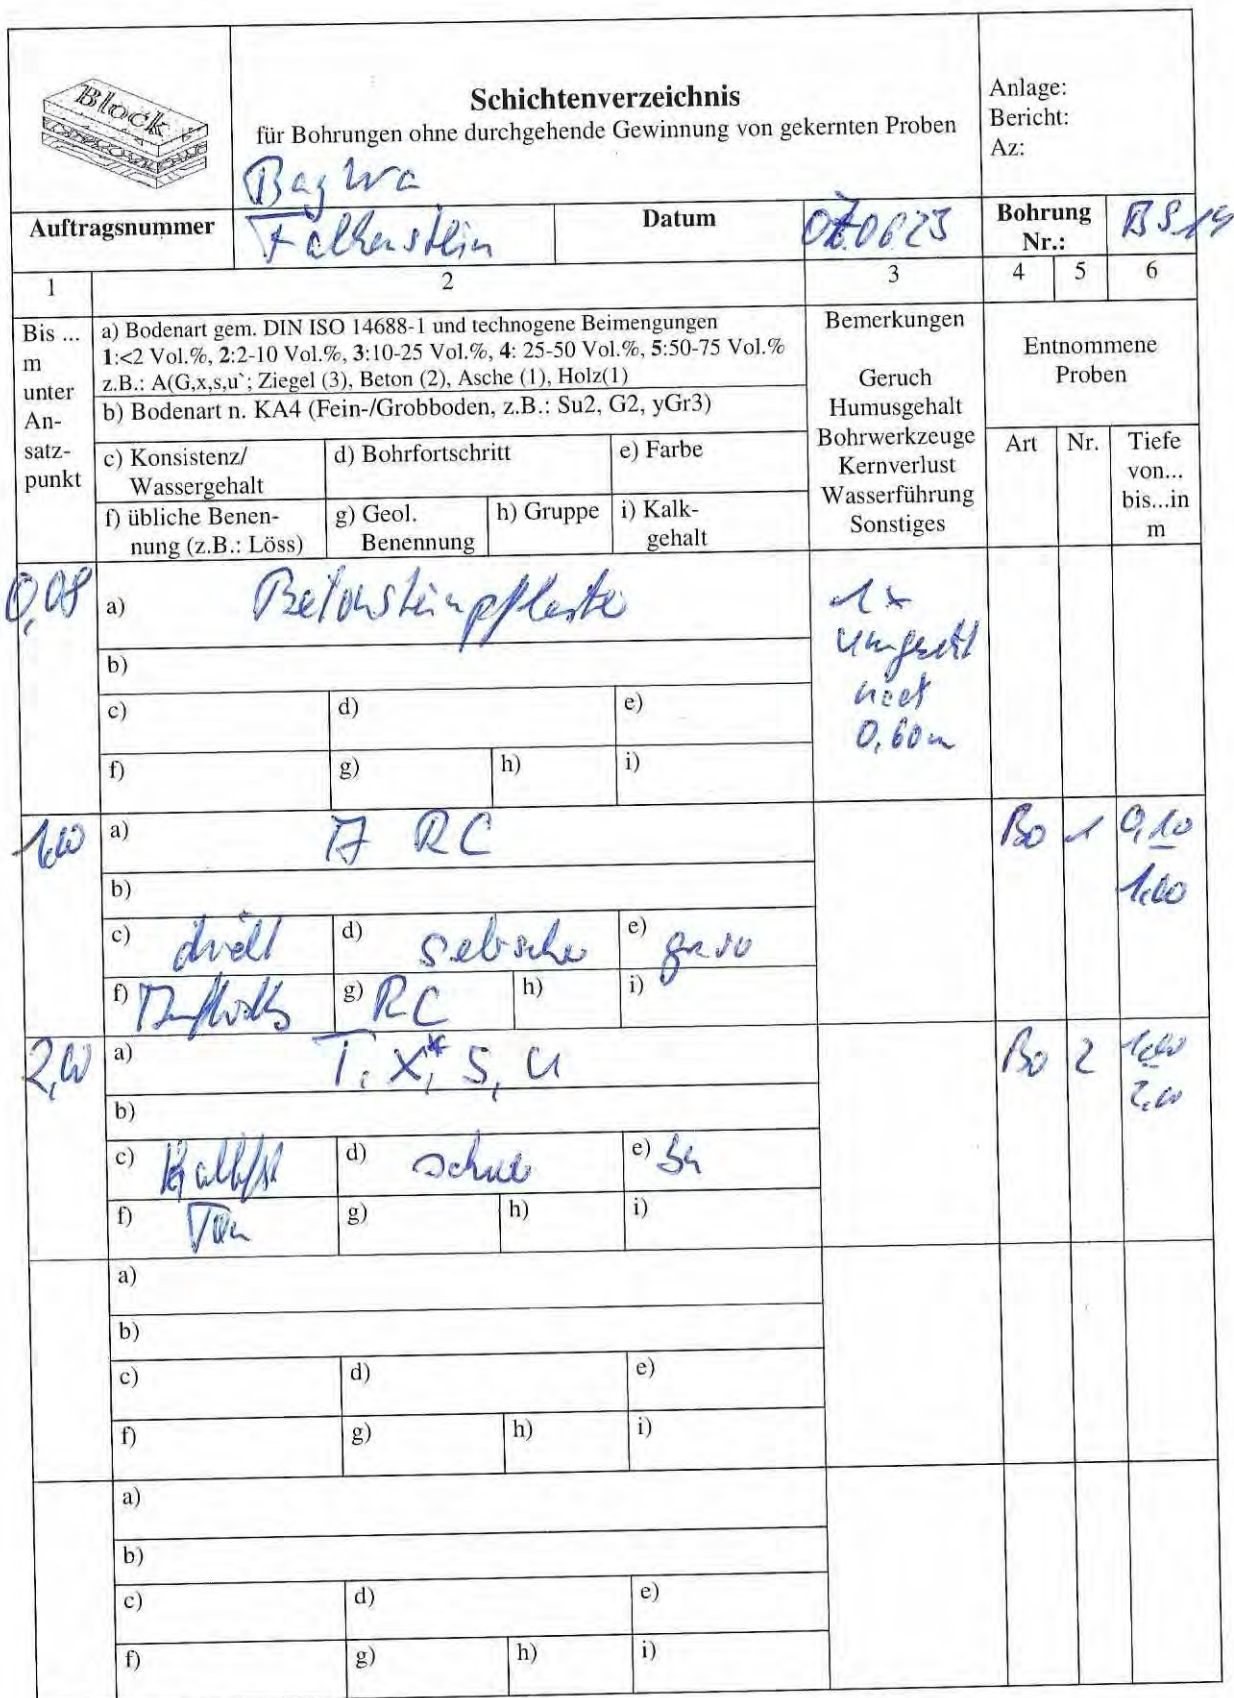 Block
Schichtenverzeichnis
für Bohrungen ohne durchgehende Gewinnung von gekernten Proben
Anlage:
Bericht:
Az:
Auftragsnummer
Falkenstein
Datum
070623
Bohrung
Nr.:
BS 14
1
2
3
4
5
6
Bis ...
m
unter
An-
satz-
punkt
a) Bodenart gem. DIN ISO 14688-1 und technogene Beimengungen
1:<2 Vol.%, 2:2-10 Vol.%, 3:10-25 Vol.%, 4: 25-50 Vol.%, 5:50-75 Vol.%
z.B.: A(G,x,s,u`; Ziegel (3), Beton (2), Asche (1), Holz(1)
b) Bodenart n. KA4 (Fein-/Grobboden, z.B.: Su2, G2, yGr3)
c) Konsistenz/
Wassergehalt
d) Bohrfortschritt
e) Farbe
f) übliche Benen-
nung (z.B.: Löss)
g) Geol.
Benennung
h) Gruppe
i) Kalk-
gehalt
Bemerkungen
Geruch
Humusgehalt
Bohrwerkzeuge
Kernverlust
Wasserführung
Sonstiges
Entnommene
Proben
Art
Nr.
Tiefe
von...
bis...in
m
0,08
a) Betonsteinpflaster
b)
c)
d)
e)
f)
g)
h)
i)
1x
umgesetzt
0,60m
1,00
a) A RC
b)
c)
d) s. schwer
e) grau
f)
g) RC
h)
i)
Bo
1
0,10
1,00
2,00
a) T, x*, s, u
b)
c) halbfst
d) schwer
e) bn
f) Ton
g)
h)
i)
Bo
2
1,00
2,00
a)
b)
c)
d)
e)
f)
g)
h)
i)
a)
b)
c)
d)
e)
f)
g)
h)
i)